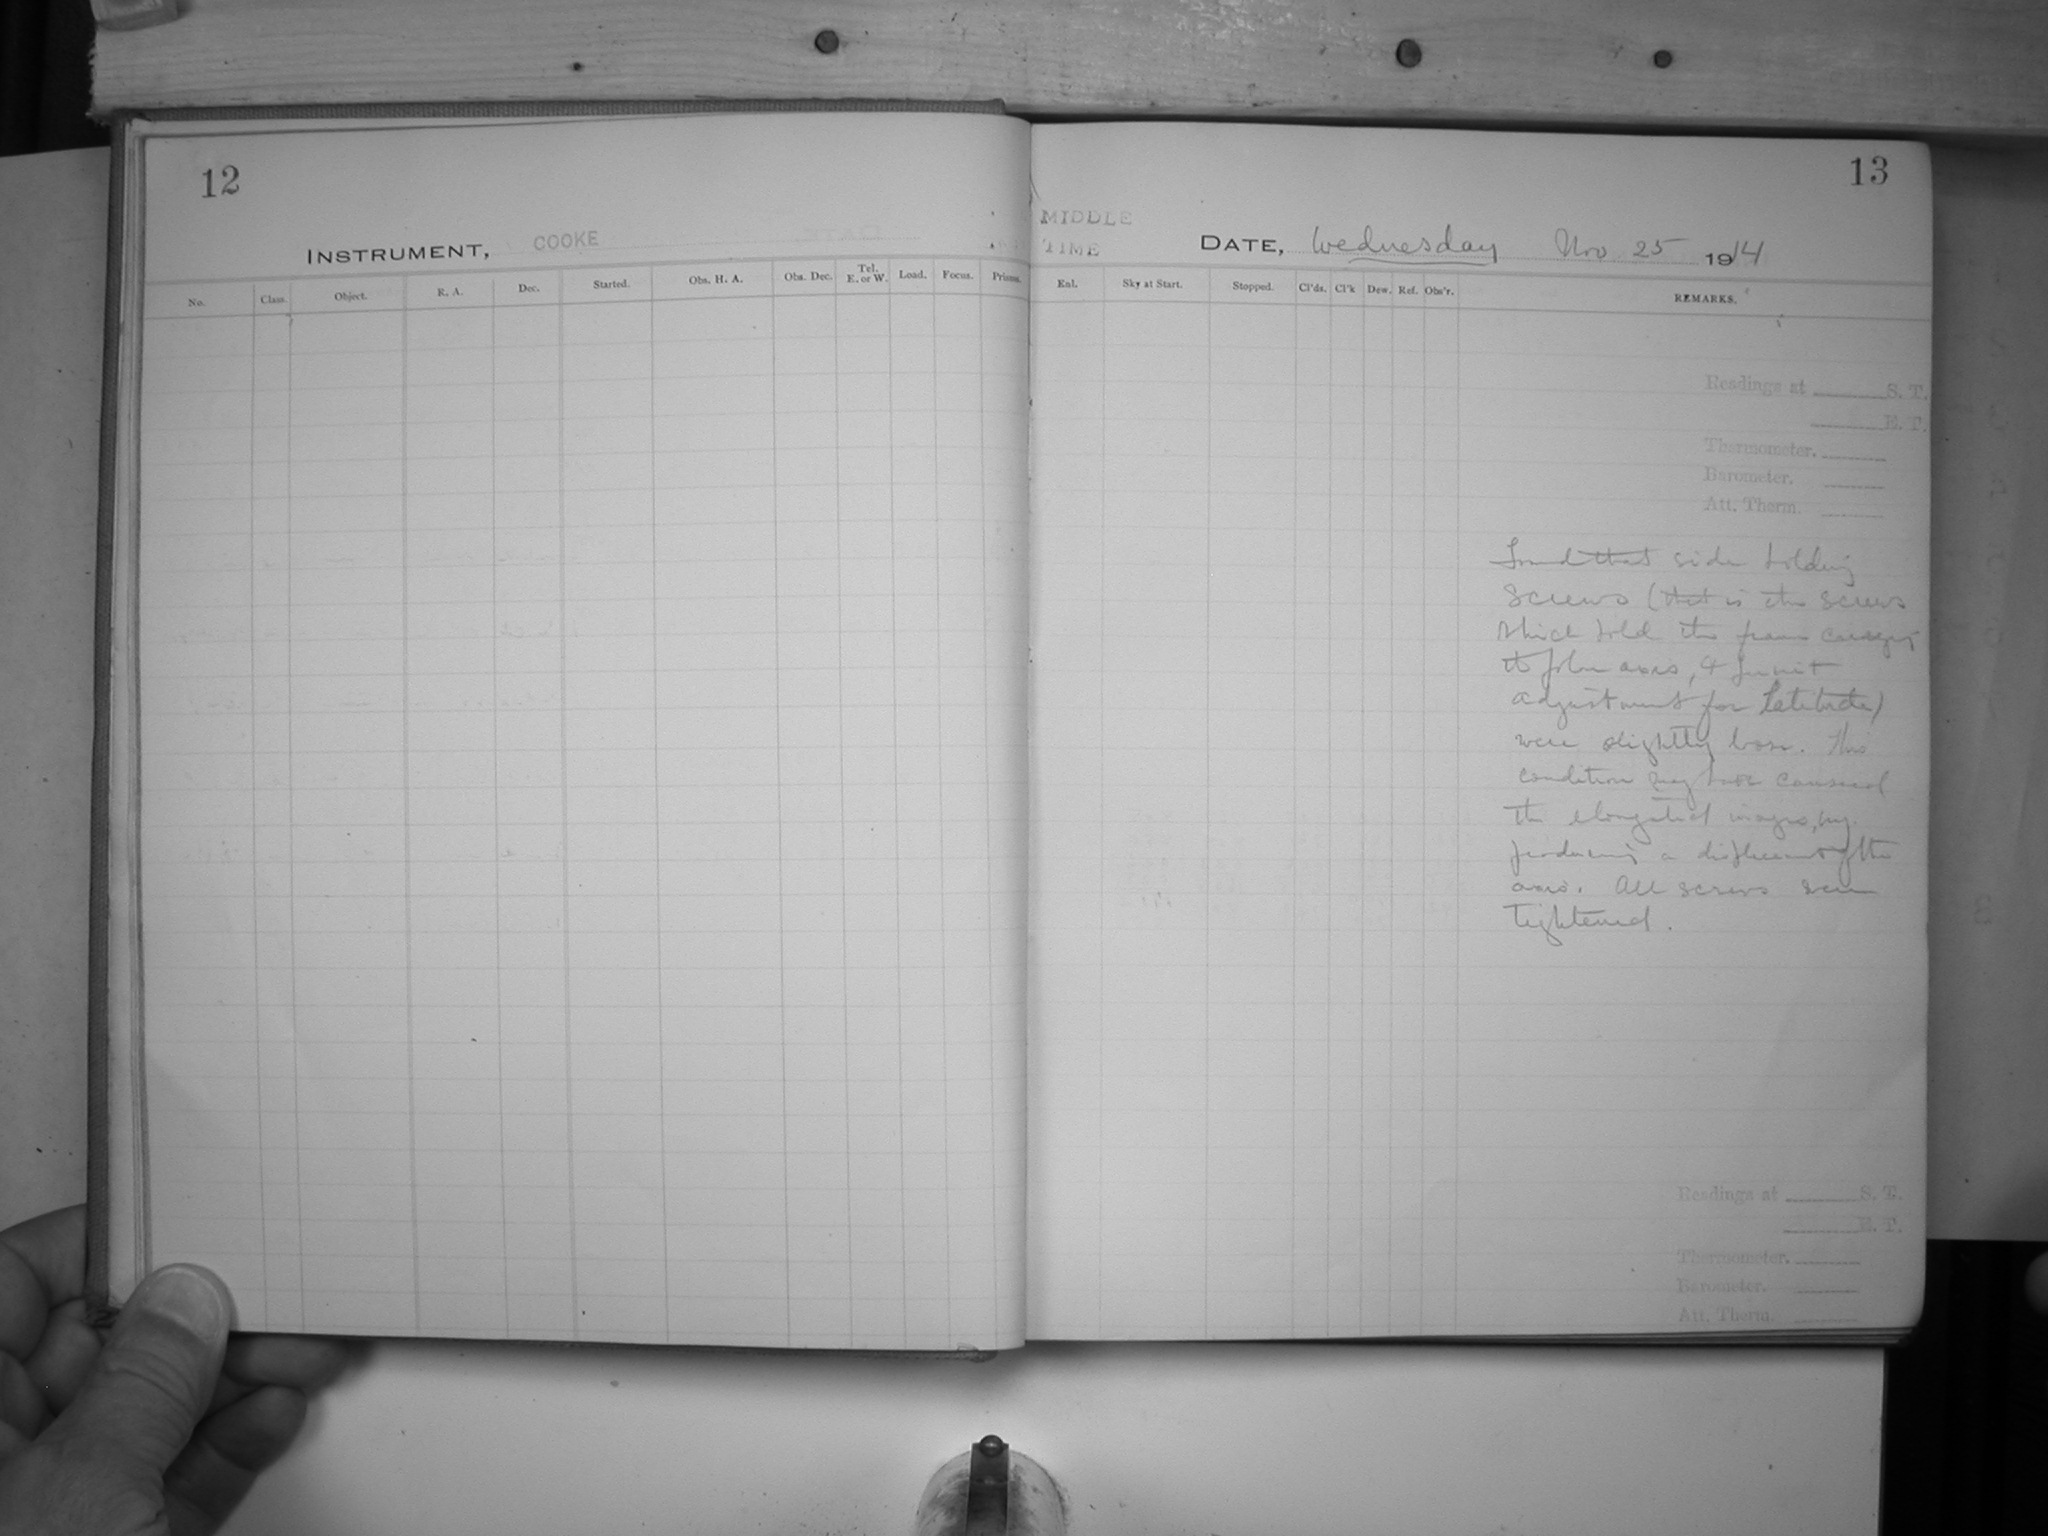 12
INSTRUMENT, COOKE
No. Class. Object. R. A. Dec. Started. Obs. H. A. Obs. Dec. Tel. E. or W. Load. Focus. Prisms.
13
MIDDLE
TIME
DATE, Wednesday Nov 25 1914
Enl. Sky at Start. Stopped. Cl'ds. Cl'k Dew. Ref. Obs'r. REMARKS.
Readings at S. T.
E. T.
Thermometer.
Barometer.
Att. Therm.
Found that side holding
screws (that is the screws
which hold the frame carrying
the polar axis, & permit
adjustment for Latitude)
were slightly loose. This
condition may have caused
the elongated images, by
producing a displacement of the
axis. All screws
tightened.
Readings at S. T.
E. T.
Thermometer.
Barometer.
Att. Therm.